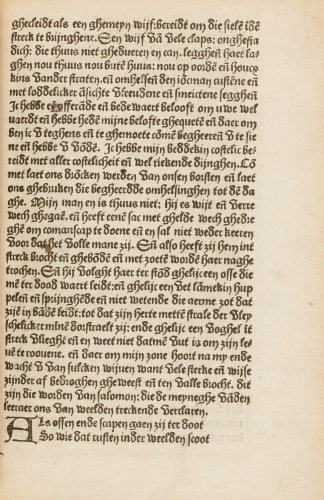 ghecleidt als een ghemeyn wijf: bereidt om die sielē īdē
strick te brijnghene. Een wijf vā vele claps: onghesta
dich: die thuus niet ghedueren en can. legghen haer la
ghen nou thuus nou butē huus: nou op oorden en houcp
kins vander straten. en omhelsen den iōcman custene en̄
met loddelicker āsichte vreudene en̄ smeictene segghen
Ic hebbe offerāde en̄ bedewaert belooft om u we wel
vaerdt en̄ hebbe hedē mijne belofte ghequetē en̄ daer om
ben ic v te ghens en̄ te ghemoete comē begheeren v te sie
ne en̄ hebbe v vōdē. Ic hebbe mijn beddekin costelic be
reidt met aller costelicheit en̄ wel riekende dijnghen. Cō
met laet ons drōcken werden van onsen borsten en̄ laet
ons ghebruken die begheerdde omhelsinghen tot dē da
ghe. Mijn man en is thuus niet: hij es wijt en̄ verre
wech ghegaē. en̄ heeft enē sac met ghelde wech ghedre
ghē om comanscap te doene en̄ en sal niet weder keeren
voor dat het volle mane zij. En̄ also heeft zij hem int
strick brocht en̄ ghebōdē en̄ met zoetē wordē haer naghe
trochen. En̄ hij volght haer ter stōd ghelijc een osse die
mē ter dood waert leidt: en̄ ghelijc een vet lāmekin hup
pelen en̄ sprijnghēde en̄ niet wetende die aerme zot dat
zijē in bādē leidt: tot dat zijn herte mettē strale der vlep
schelicker minē dorstraelt zij: ende ghelijc een voghel īt
strick vlieght en̄ en weet niet datmē vut is om zijn lev
te roovene. en̄ daer om mijn zone hoort na my ende
wacht v van sulcken wijuen want vele sterke en̄ wijse
zijnder af bedroghen gheweest en̄ ten valle brocht. dit
zijn die worden van salomon: die de meyneghe vādē
seeraet ons van weelden treckende verclaren.
Als ossen ende scapen gaen zij ter doot
So wie dat rusten inder weelden scoot